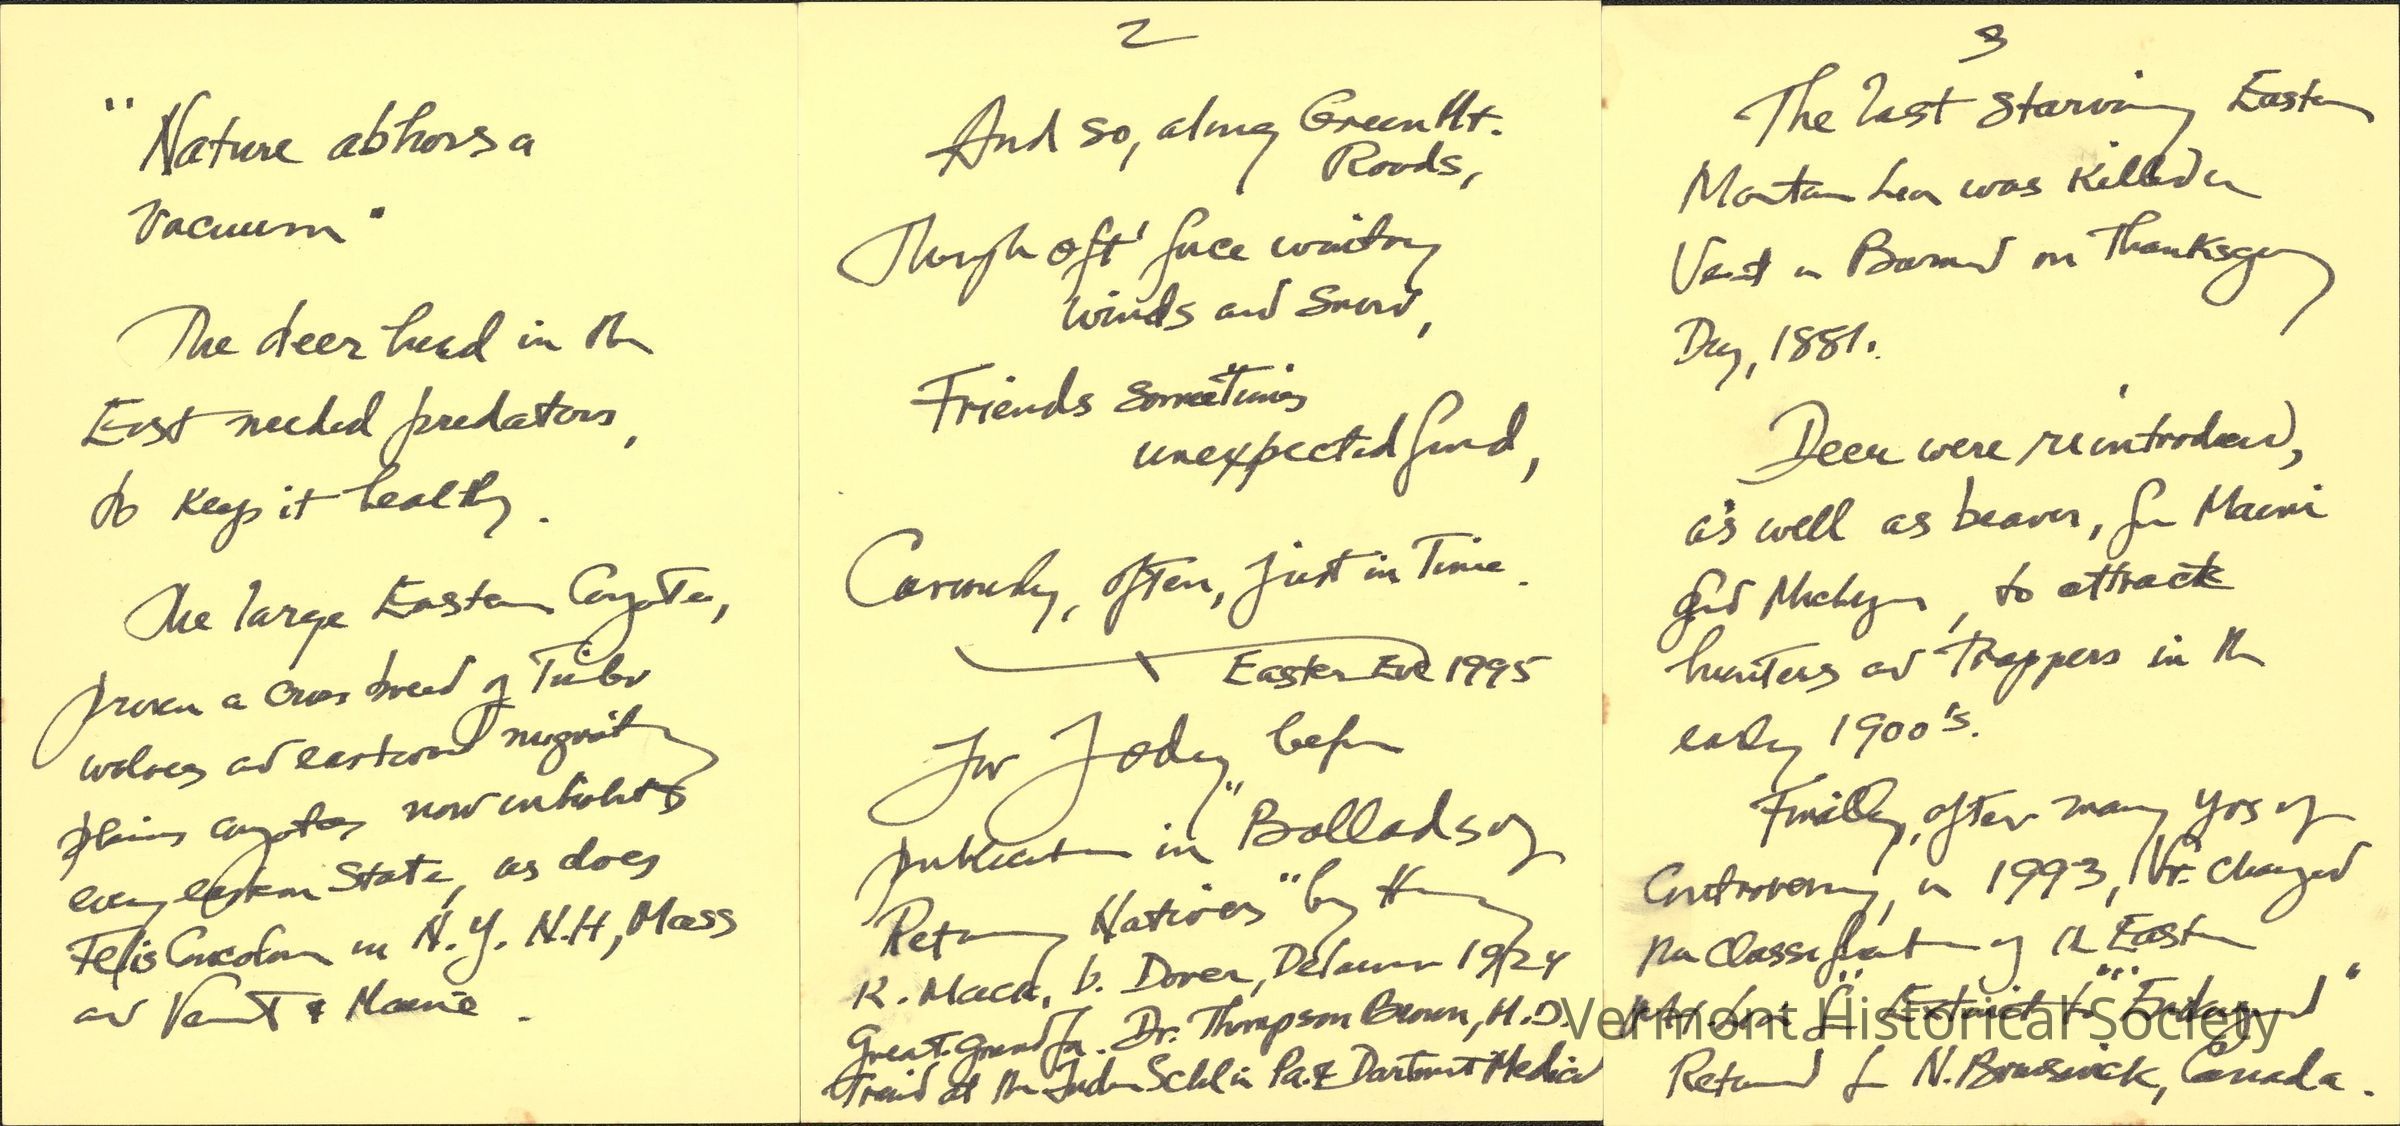 "Nature abhors a
Vacuum"
The deer herd in the
East needed predators,
to keep it healthy.
The large Eastern Coyote,
proven a cross breed of Timber
wolves and eastward migrating
plains coyotes, now inhabits
every eastern State, as does
Felis Concolor in N.Y. N.H, Mass
and Vermont & Maine.
2
And so, along Green Mt.
Roads,
Though oft' face wintry
winds and snow,
Friends sometimes
unexpected find,
often, just in Time.
Easter Eve 1995
For Jody, before
publication in "Ballads of
Returning Natives" by Henry
K. Mack, b. Dover, Delaware 1924
Great. Grandfa. Dr. Thompson Brown, M.D.
Traind at the Schl in Pa. & Dartmouth Medical
3
The last starving Eastern
Mountain Lion was killed in
Vermont in Barnard on Thanksgiving
Day, 1881.
Deer were reintroduced,
as well as beaver, from Maine
and Michigan, to attrack
hunters and Trappers in the
early 1900's.
Finally, after many yrs of
Controversy, in 1993, Vt. changed
the classification of the Eastern
Mt. Lion from "Extinct" to "Endangered"
Returned from N. Brunswick, Canada.
Vermont Historical Society